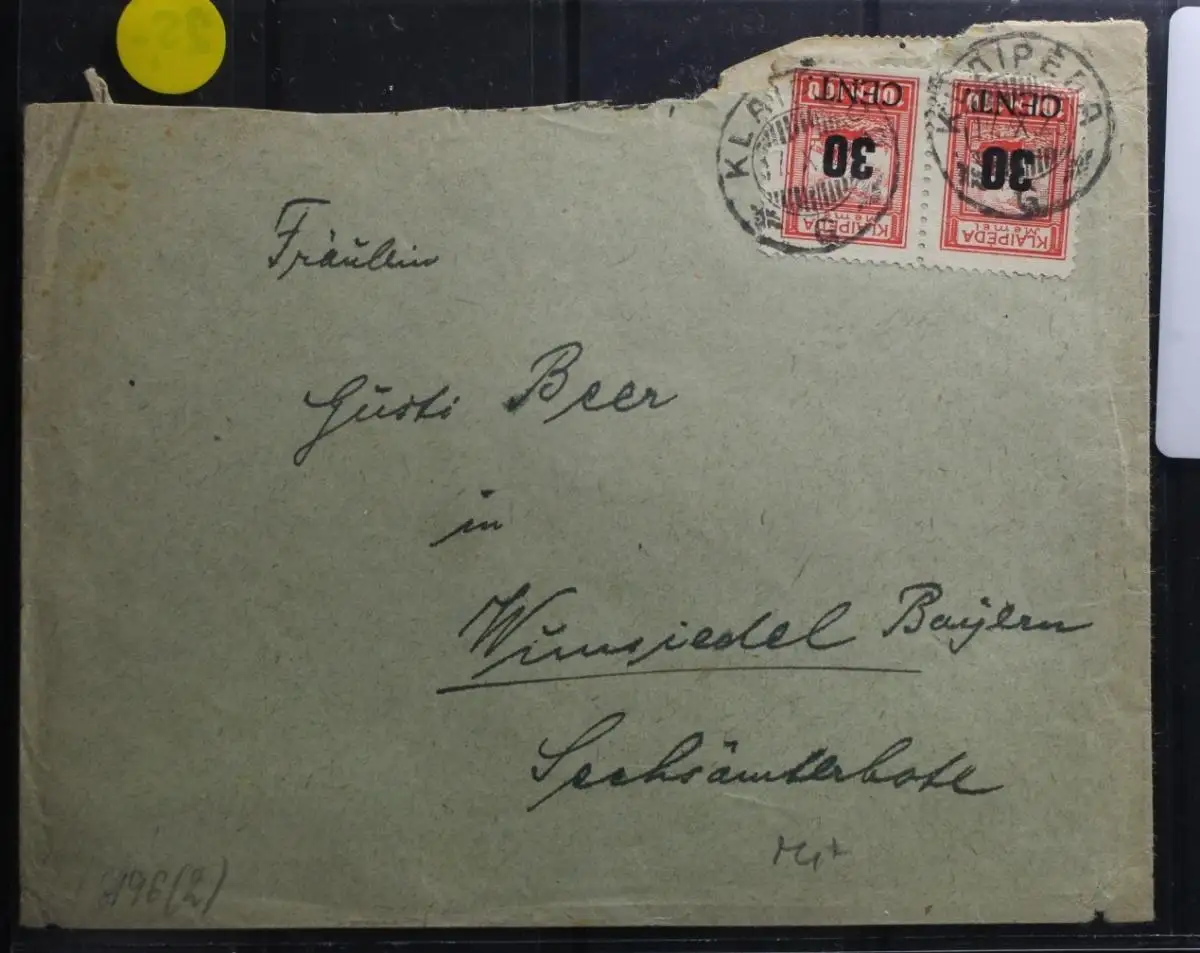 KLAIPEDA
G
KLAIPEDA
G
KLAIPĖDA
Memel
30
CENT.
KLAIPĖDA
Memel
30
CENT.
Fräulein
Gusti Beer
in
Wunsiedel Bayern
Sechsämterbote
196(2)